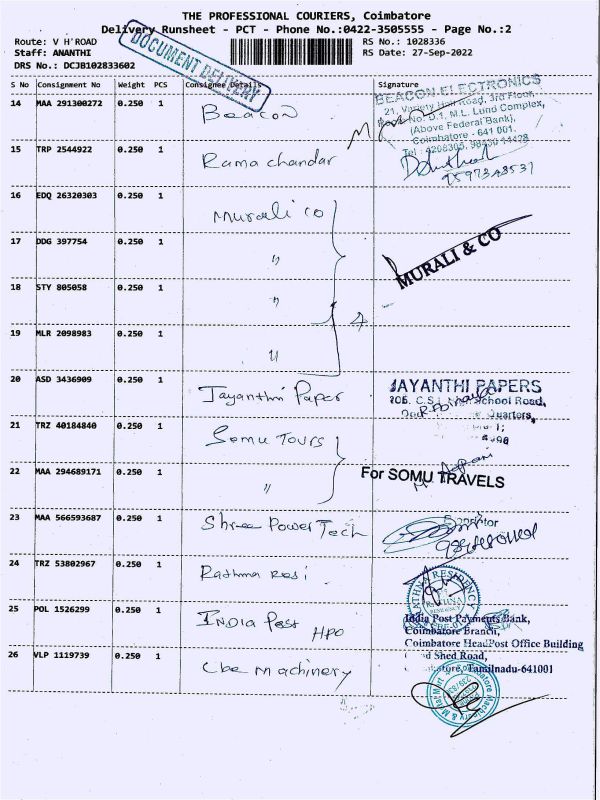 THE PROFESSIONAL COURIERS, Coimbatore
Delivery Runsheet - PCT - Phone No.:0422-3505555 - Page No.:2
Route: V H'ROAD
RS No.: 1028336
Staff: ANANTHI
RS Date: 27-Sep-2022
DRS No.: DCJB102833602
DOCUMENT DELIVERY
S No Consignment No Weight PCS Consignee Details Signature
14 MAA 291300272 0.250 1 Beacon
BEACON ELECTRONICS
21, Variety Hall Road, 3rd Floor,
No: D.1, M.L. Lund Complex,
(Above Federal Bank),
Coimbatore - 641 001.
Tel : 4208303, 98430 14428
15 TRP 2544922 0.250 1 Rama chandar
16 EDQ 26320303 0.250 1 Murali co
17 DDG 397754 0.250 1 "
MURALI & CO
18 STY 805058 0.250 1 "
4
19 MLR 2098983 0.250 1 "
20 ASD 3436909 0.250 1 Jayanthi Paper
JAYANTHI PAPERS
206, C.S.I. High School Road,
Quarters,
21 TRZ 40184840 0.250 1 Somu Tours
22 MAA 294689171 0.250 1 "
For SOMU TRAVELS
23 MAA 566593687 0.250 1 Shree Power Tech
24 TRZ 53802967 0.250 1 Rathna resi.
RATHNA RESIDENCY
25 POL 1526299 0.250 1 INDIA Post HPO
India Post Payments Bank,
Coimbatore Branch,
Coimbatore HeadPost Office Building
Shed Road,
Tamilnadu-641001
26 VLP 1119739 0.250 1 Cbe Machinery
Coimbatore Machinery &